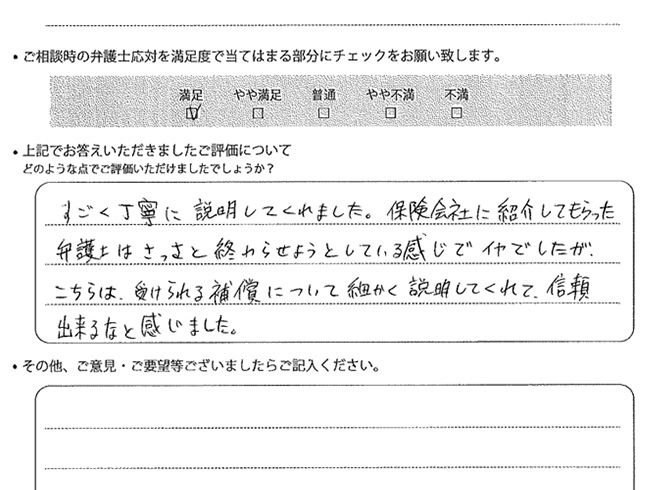 ・ご相談時の弁護士応対を満足度で当てはまる部分にチェックをお願い致します。
満足 やや満足 普通 やや不満 不満
☑ □ □ □ □
・上記でお答えいただきましたご評価について
どのような点でご評価いただけましたでしょうか？
すごく丁寧に説明してくれました。保険会社に紹介してもらった
弁護士はさっさと終わらせようとしている感じでイヤでしたが、
こちらは、受けられる補償について細かく説明してくれて、信頼
出来るなと感じました。
・その他、ご意見・ご要望等ございましたらご記入ください。